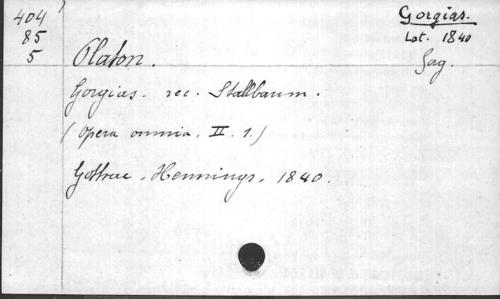 404
85
5
Gorgias.
Lat. 1840
Gorg.
Platon.
Gorgias. rec. Stallbaum.
(Opera omnia. II. 1.)
Gothae, Hennings, 1840.